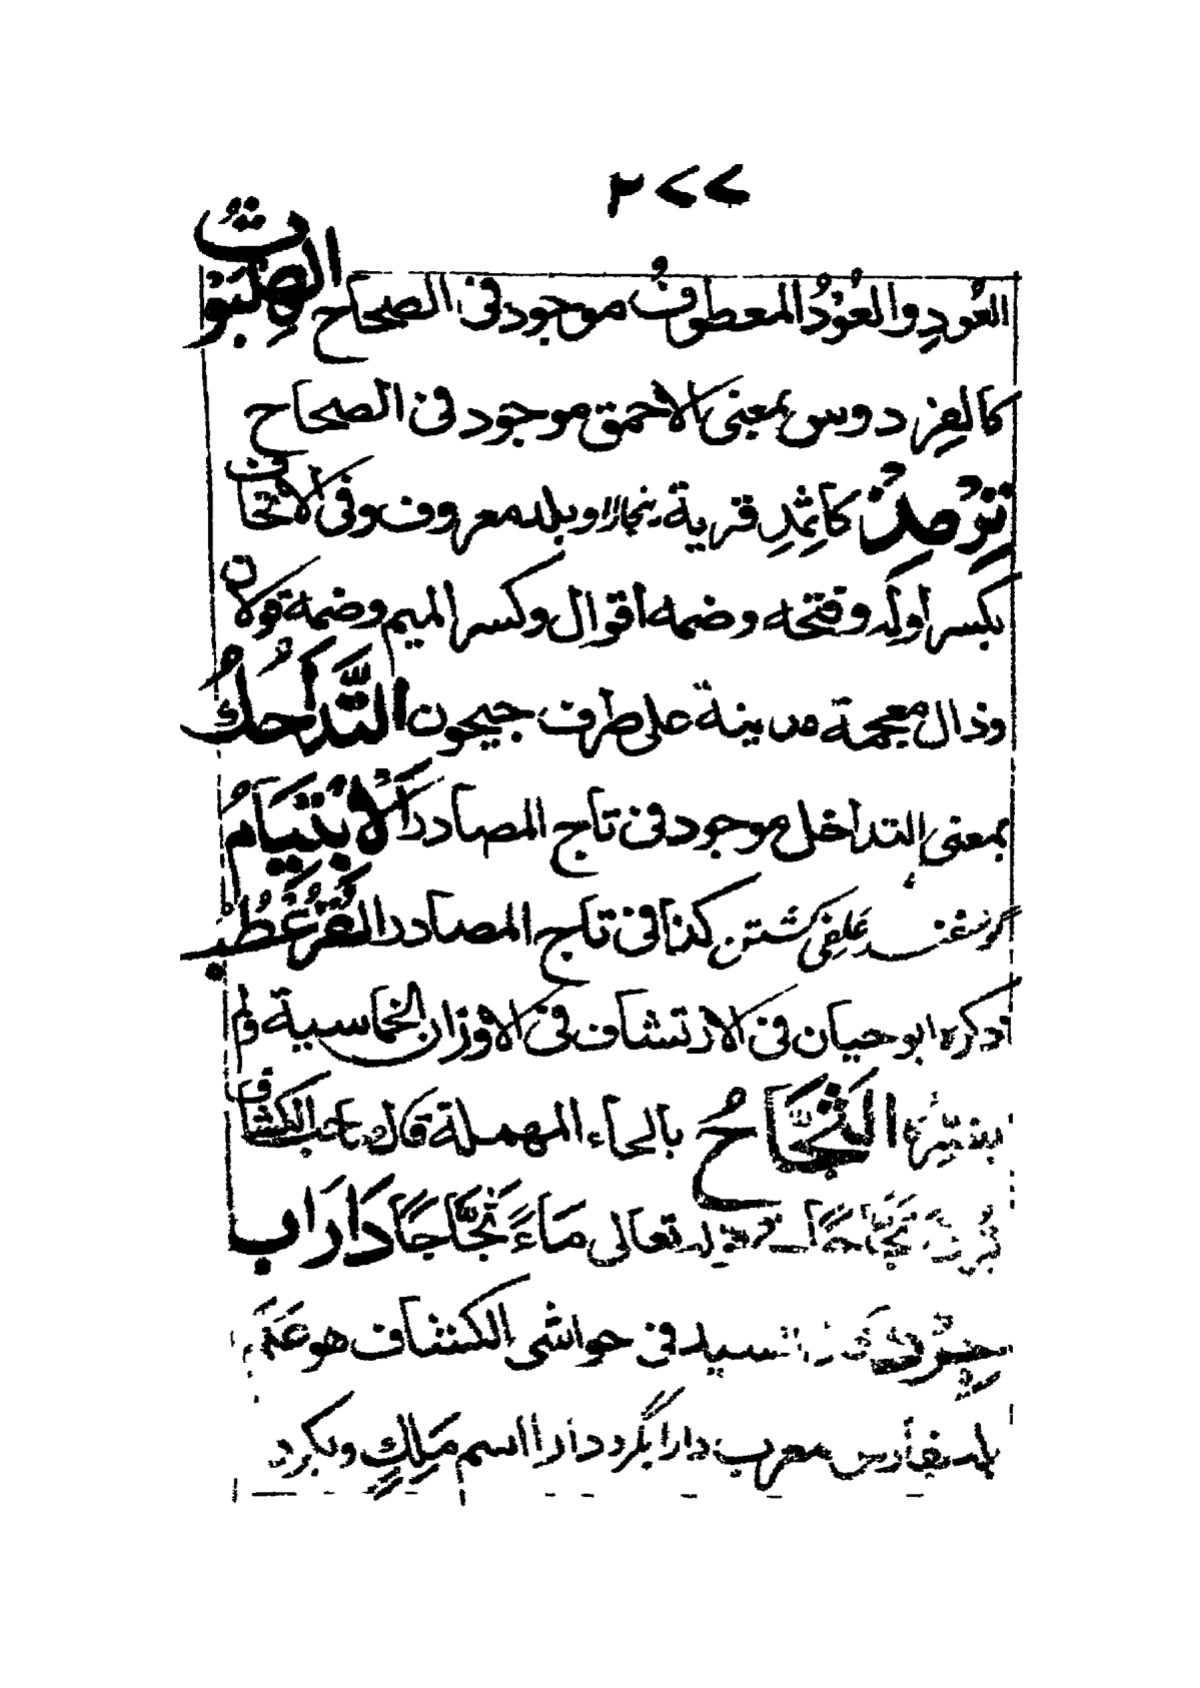 ٢٧٧
العُودِ والعُوْدُ المعطوفُ موجود فى الصحاح الهِبَّبُوْتُ
كالفِرْدوس بمعنى الاحمق موجود فى الصحاح
تِرْمِذُ كَاِثْمِدِ قرية ببخارا وبلد معروف وفى الاتحاف
بكسر اوله وفتحه وضمه اقوال وكسر الميم وضمه قولان
وذال معجمة مدينة على طرف جيحون التَّدَاحُكُ
بمعنى التداخل موجود فى تاج المصادر اَلْاِبْتِيَامُ
گوسفند علفى كشتن كذا فى تاج المصادر القُرْعُطُبُ
ذكره ابو حيان فى الارتشاف فى الاوزان الخماسية ولم
يفسره اَلثَّجَّاحُ بالحاء المهملة قال صاحب الكشاف
قرئ ثَجَّاحًا فى قوله تعالى مَاءً ثَجَّاجًا دَارَاب
جِرْد السيد فى حواشى الكشاف هو عَلَم
بلد بفارس معرب دارابگرد دارا اسم مَلِكٍ وبكرد